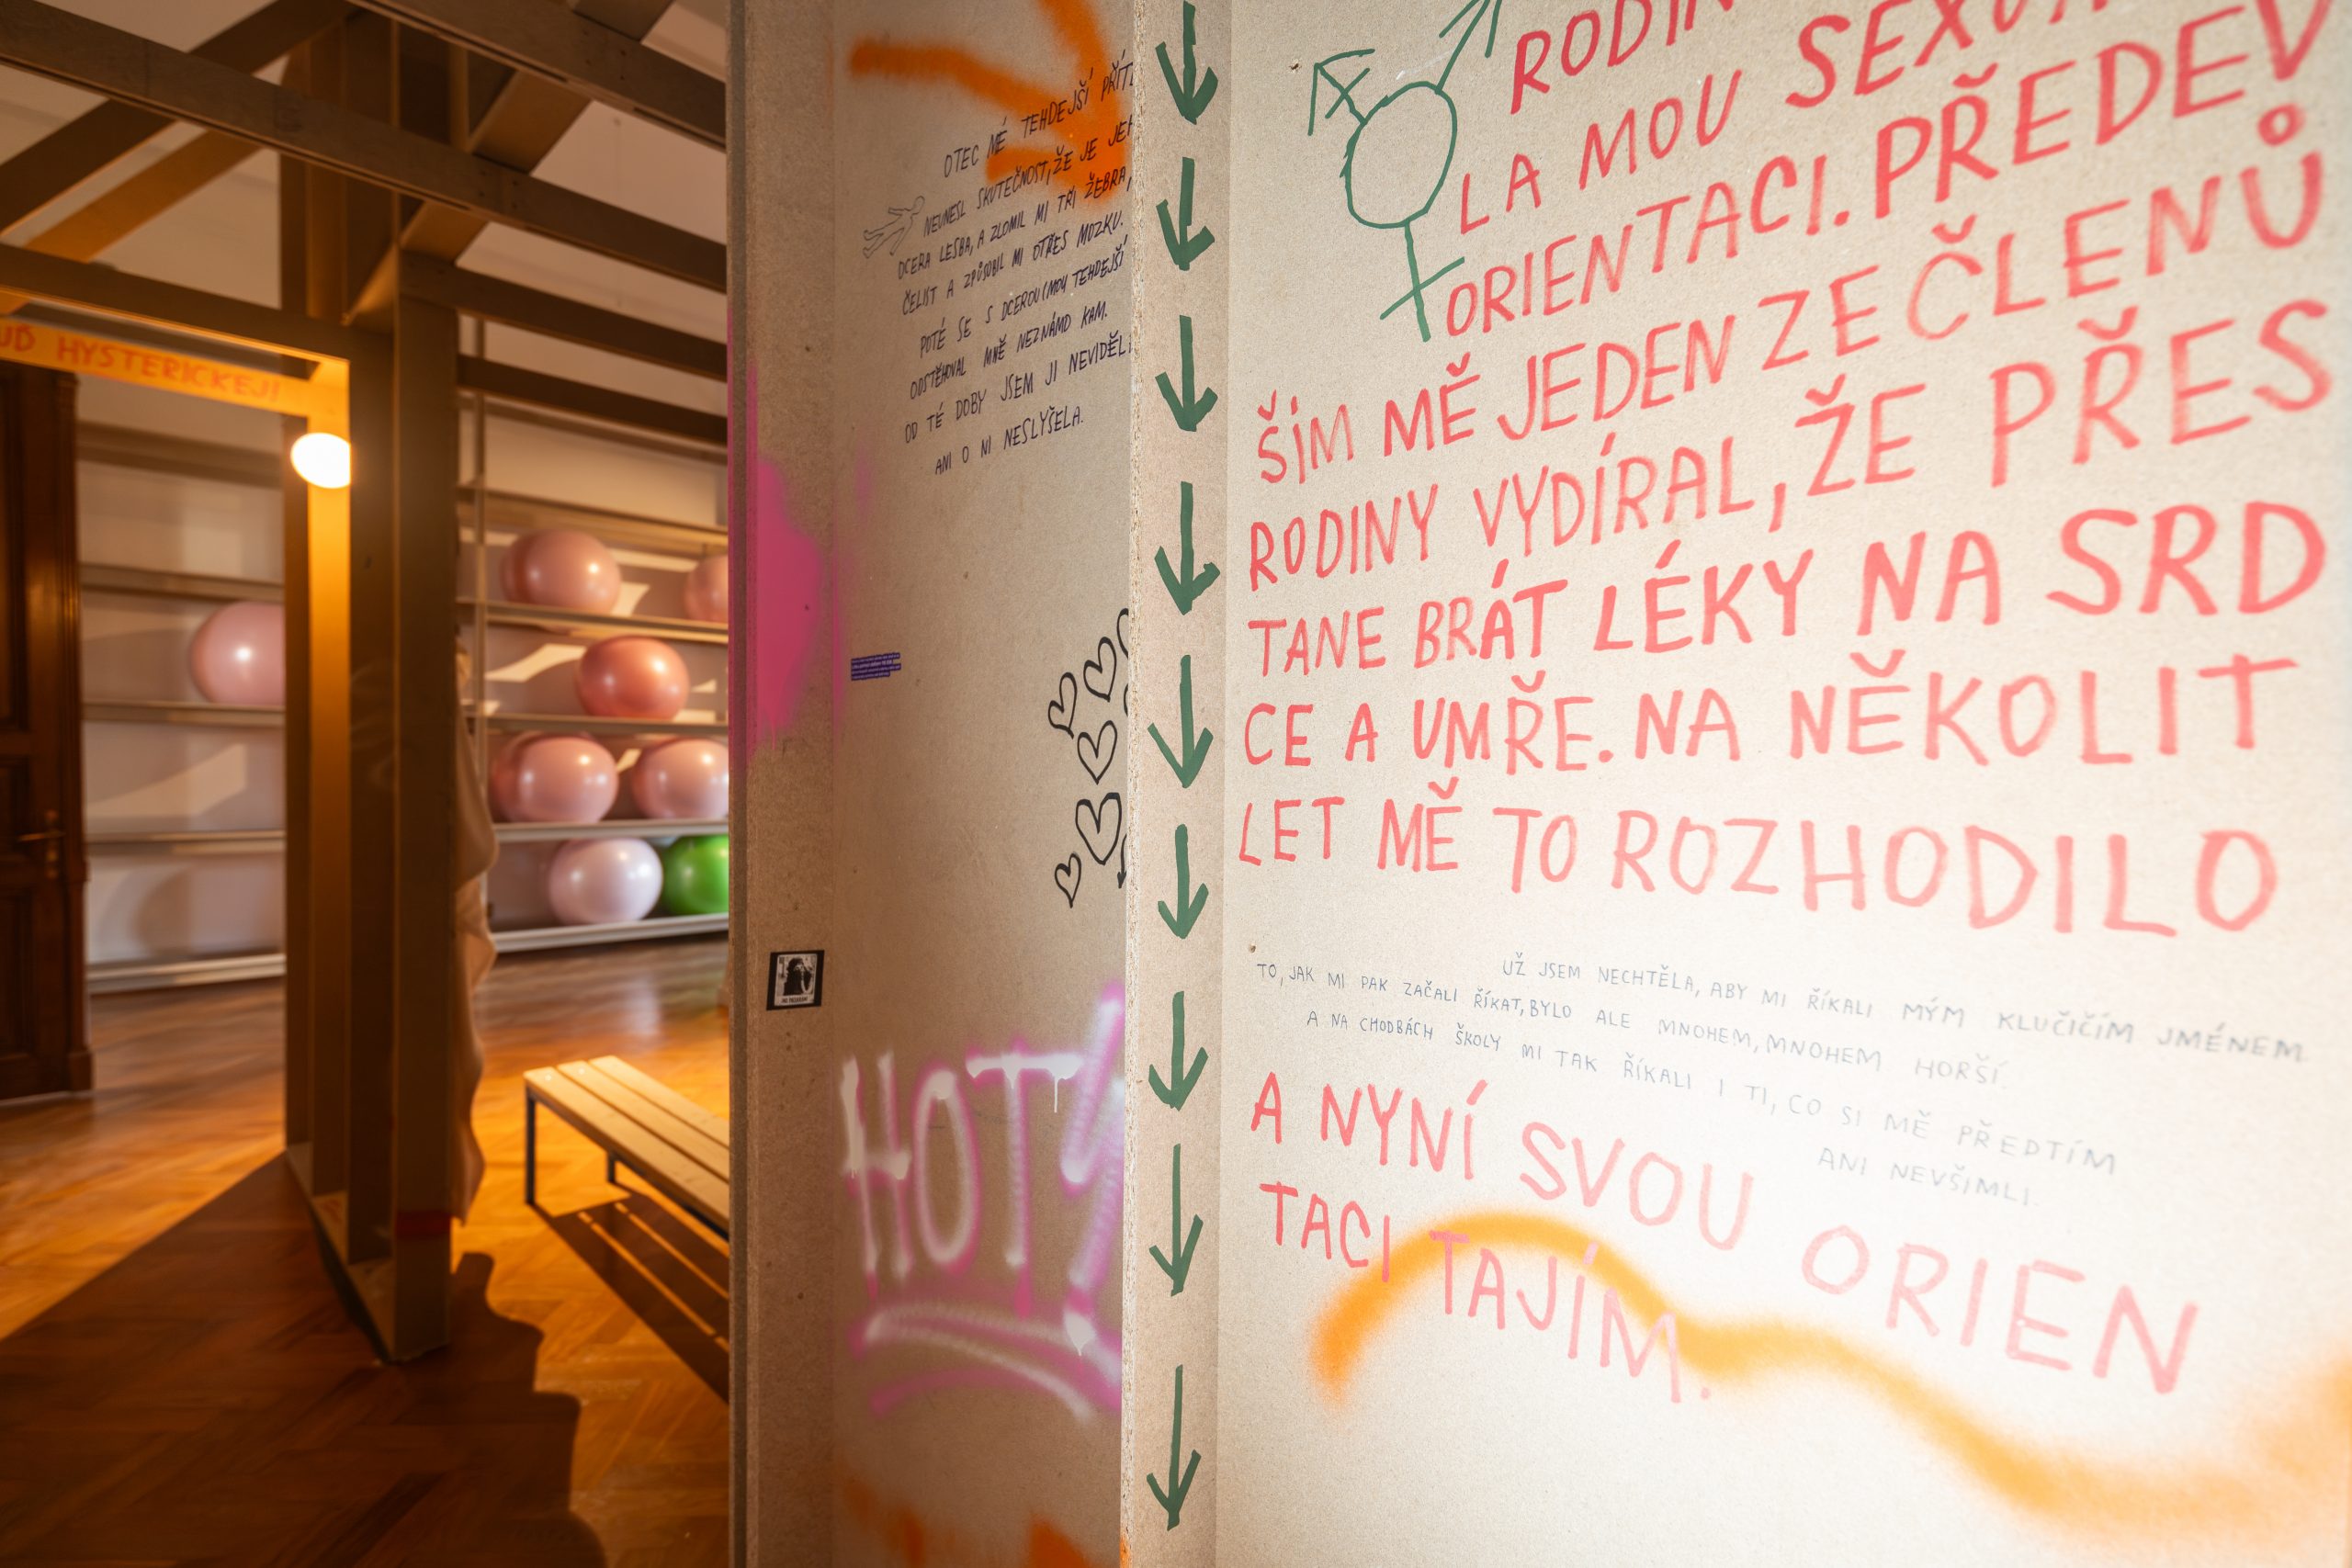 HYSTERICKEJ!
OTEC MÉ TEHDEJŠÍ
NEUNESL SKUTEČNOST, ŽE JE
DCERA LESBA, A ZLOMIL MI TŘI ŽEBRA,
ČELIST A ZPŮSOBIL MI OTŘES MOZKU.
POTÉ SE S DCEROU (MOU TEHDEJŠÍ
ODSTĚHOVAL MNĚ NEZNÁMO KAM.
OD TÉ DOBY JSEM JI
ANI O NÍ NESLYŠELA.
HOT
LA MOU
ORIENTACI. PŘEDEV
ŠÍM MĚ JEDEN ZE ČLENŮ
RODINY VYDÍRAL, ŽE PŘES
TANE BRÁT LÉKY NA SRD
CE A UMŘE. NA NĚKOLIT
LET MĚ TO ROZHODILO
UŽ JSEM NECHTĚLA, ABY MI ŘÍKALI MÝM KLUČIČÍM JMÉNEM.
TO, JAK MI PAK ZAČALI ŘÍKAT, BYLO ALE MNOHEM, MNOHEM HORŠÍ.
A NA CHODBÁCH ŠKOLY MI TAK ŘÍKALI I TI, CO SI MĚ PŘEDTÍM
ANI NEVŠIMLI.
A NYNÍ SVOU ORIEN
TACI TAJÍM.